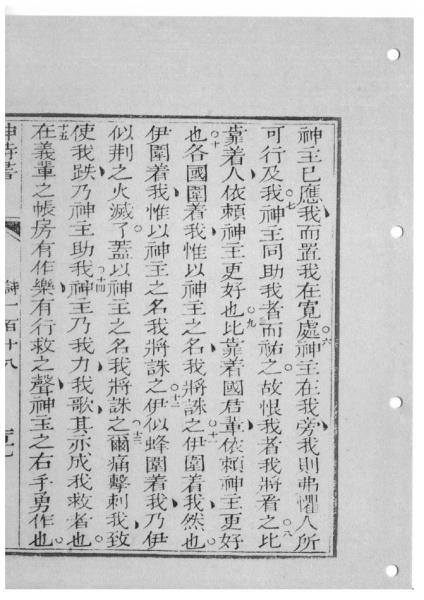 神主已應我而置我在寬處○六神主在我旁我則弗懼人所
可行及我○七神主同助我者而祐之故恨我者我將看之○八比
靠着人依賴神主更好也○九比靠着國君輩依賴神主更好
也○十各國圍着我惟以神主之名我將誅之○十一伊圍着我然也
伊圍着我惟以神主之名我將誅之○十二伊似蜂圍着我乃伊
似荆之火滅了蓋以神主之名我將誅之○十三爾痛擊刺我致
使我跌乃神主助我○十四神主乃我力我歌其亦成我救者也
十五在義輩之帳房有作樂有行救之聲神主之右手勇作也
神詩書 詩一百十八